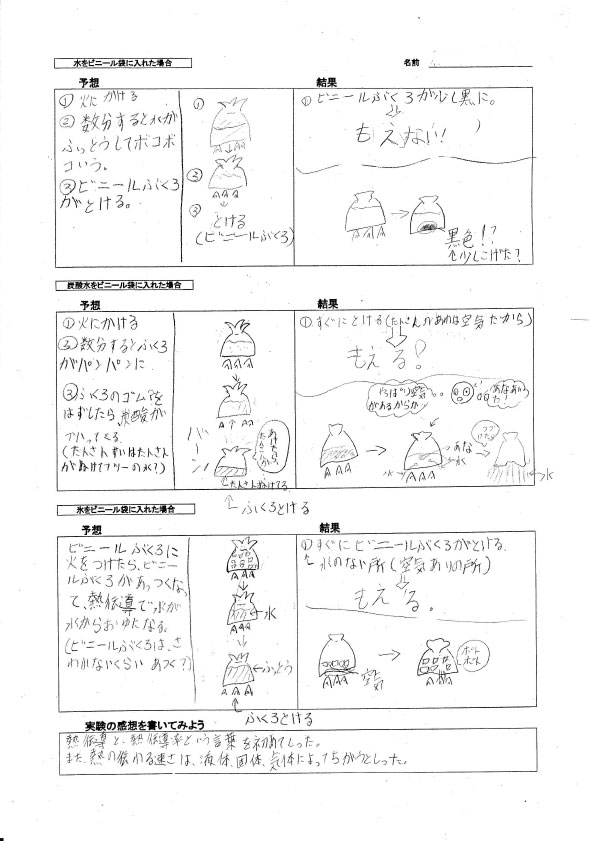 水をビニール袋に入れた場合
名前
予想
結果
①火にかける
②数分すると水が
ふっとうしてボコボ
コいう。
③ビニールぶくろ
がとける。
①
②
③
とける
(ビニールぶくろ)
①ビニールぶくろが少し黒に。
もえない!
黒色!?
↑少しこげた?
炭酸水をビニール袋に入れた場合
予想
結果
①火にかける
②数分するとふくろ
がパンパンに
③ふくろのゴムを
はずしたら、炭酸が
(たんさんすいはたんさん
がぬけてフリーの水?)
バーン
たんさんぬけてる
↑ふくろとける
①すぐにとける(たんさんのあわは空気だから)
もえる!
やっぱり空気
があるからか…
あなあいっ
た
あな
水
水
水
氷をビニール袋に入れた場合
予想
結果
ビニールぶくろに
火をつけたら、ビニー
ルぶくろがあつくなっ
て、熱伝導で氷が
水からおゆになる。
(ビニールぶくろは、さ
われないくらいあつく?)
←水
←ふっとう
ふくろとける
①すぐにビニールぶくろがとける。
↑氷のない所(空気ありの所)
もえる。
空気!
ボト
ボト
実験の感想を書いてみよう
熱伝導と、熱伝導率という言葉を初めてしった。
また、熱の伝わる速さは、液体、固体、気体によってちがうとしった。